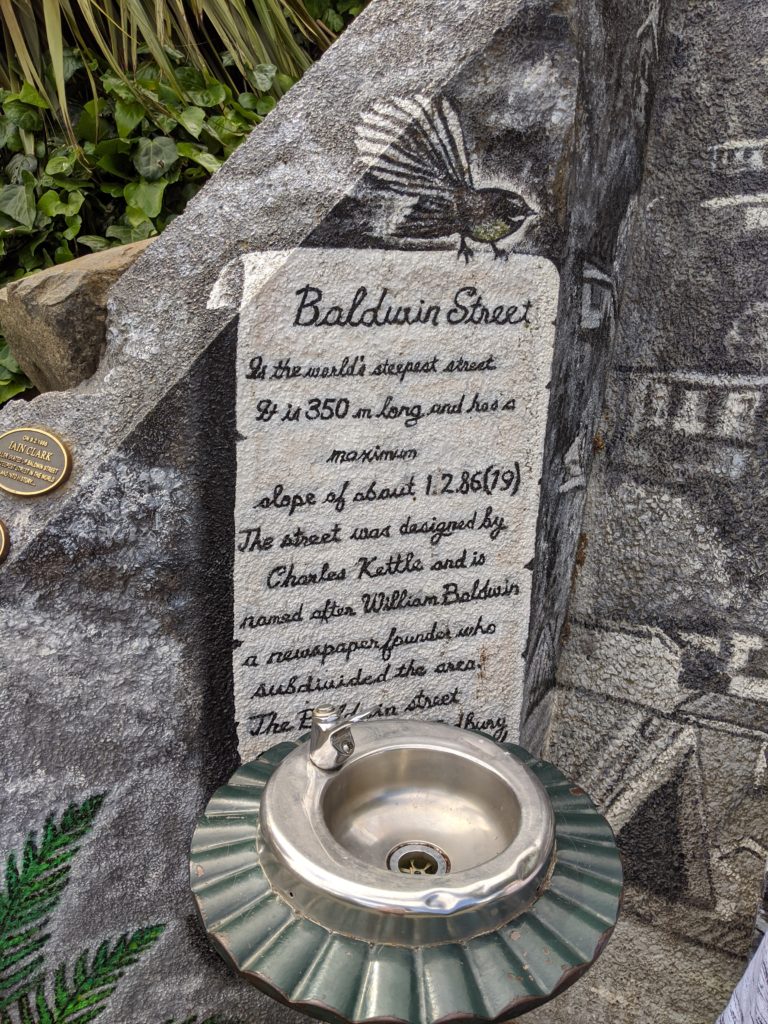 Baldwin Street
Is the world's steepest street
It is 350 m long and has a
maximum
slope of about 1.2.86(19)
The street was designed by
Charles Kettle and is
named after William Baldwin
a newspaper founder who
subdivided the area.
The Baldwin street
IAIN CLARK